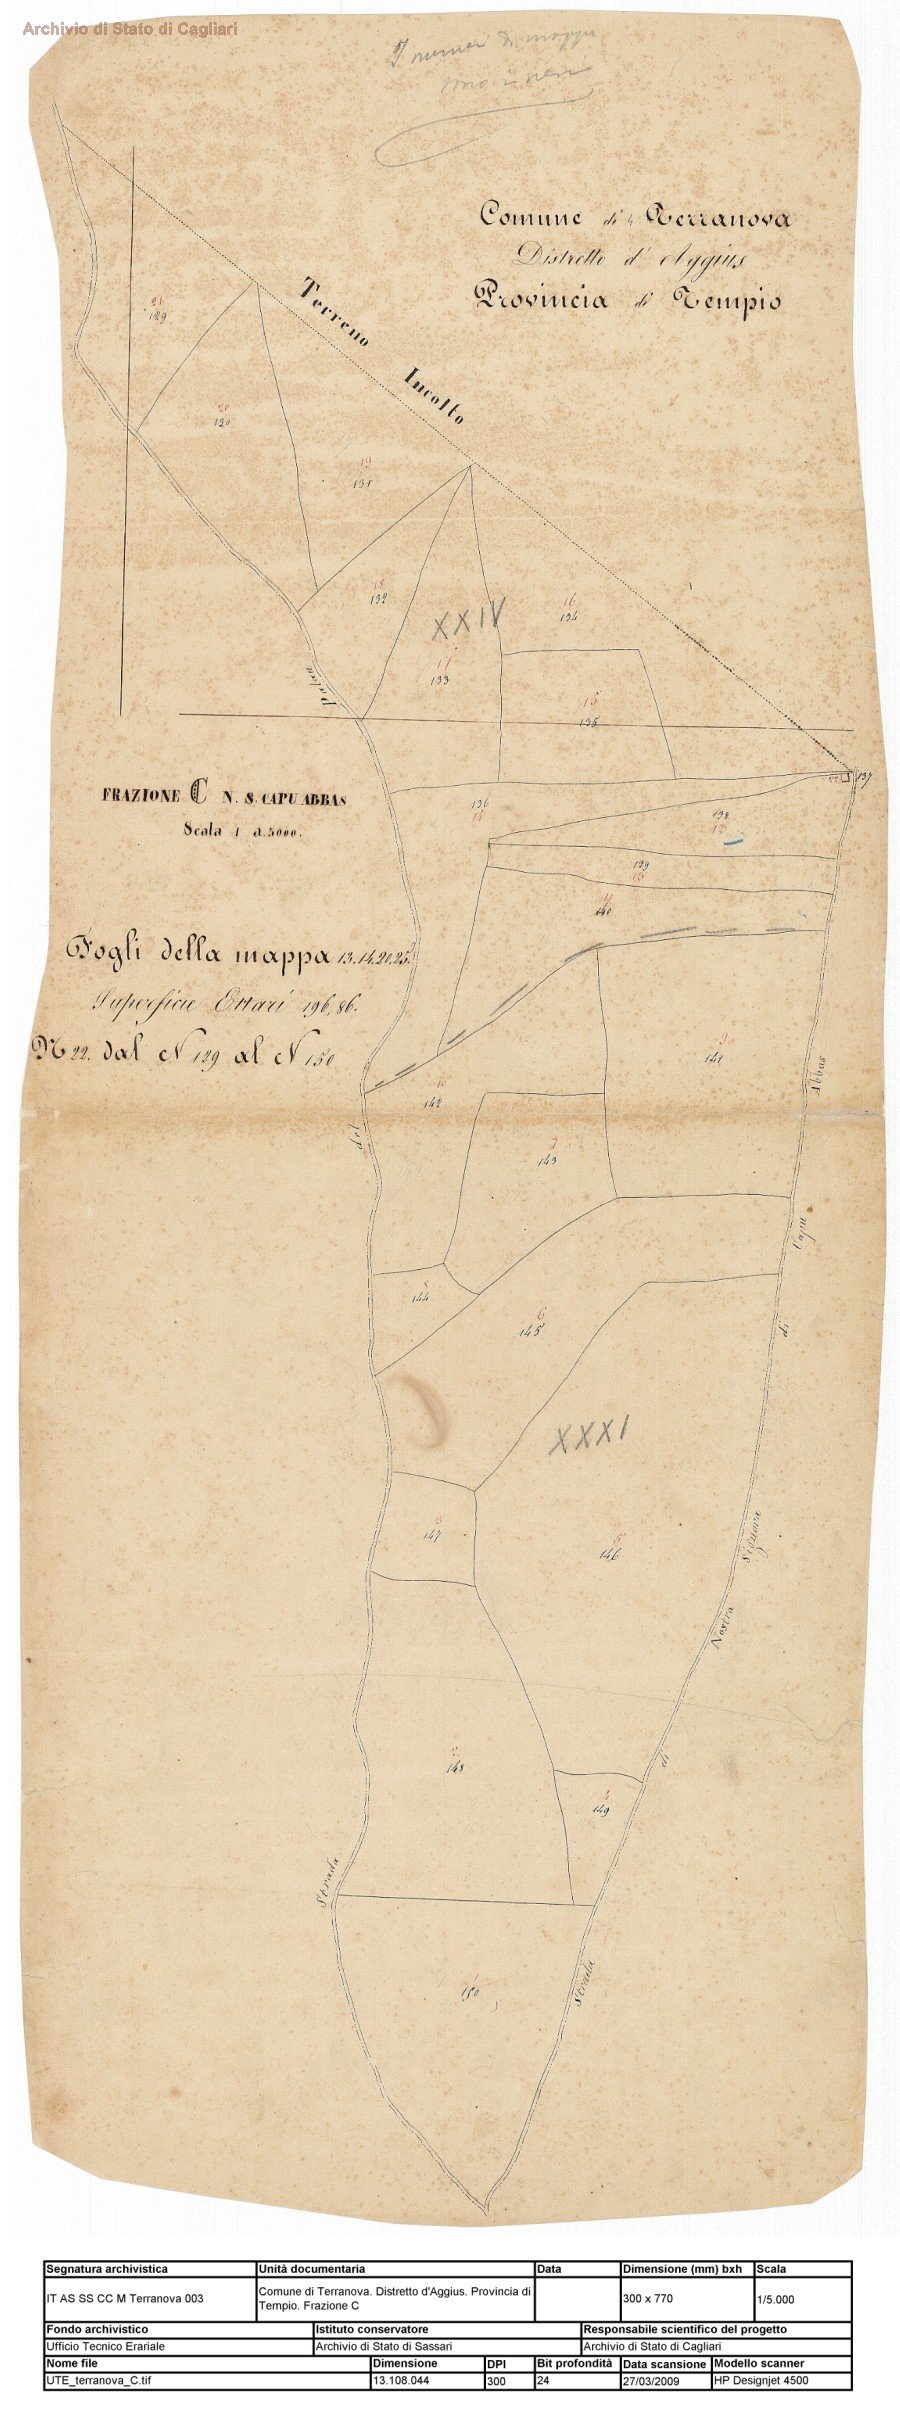 Archivio di Stato di Cagliari
I numeri di mappa
sono i neri
Comune di Terranova
Distretto d'Aggius
Provincia di Tempio
Terreno Incolto
21
129
20
130
19
131
18
132
XXIV
17
133
16
134
15
135
Palau
22
137
FRAZIONE C N. S. CAPU ABBAS
Scala 1 a 5000.
136
14
138
13
139
12
11
140
Fogli della mappa 13.14.20.25.
Superficie Ettari 196,86.
N 22. dal N 129 al N 150
9
141
10
142
Abbas
del
7
143
Capu
8
144
6
145
di
XXXI
3
147
5
146
Signora
Nostra
2
148
di
4
149
Strada
1
150
Strada
Segnatura archivistica Unità documentaria Data Dimensione (mm) bxh Scala
IT AS SS CC M Terranova 003 Comune di Terranova. Distretto d'Aggius. Provincia di Tempio. Frazione C 300 x 770 1/5.000
Fondo archivistico Istituto conservatore Responsabile scientifico del progetto
Ufficio Tecnico Erariale Archivio di Stato di Sassari Archivio di Stato di Cagliari
Nome file Dimensione DPI Bit profondità Data scansione Modello scanner
UTE_terranova_C.tif 13.108.044 300 24 27/03/2009 HP Designjet 4500